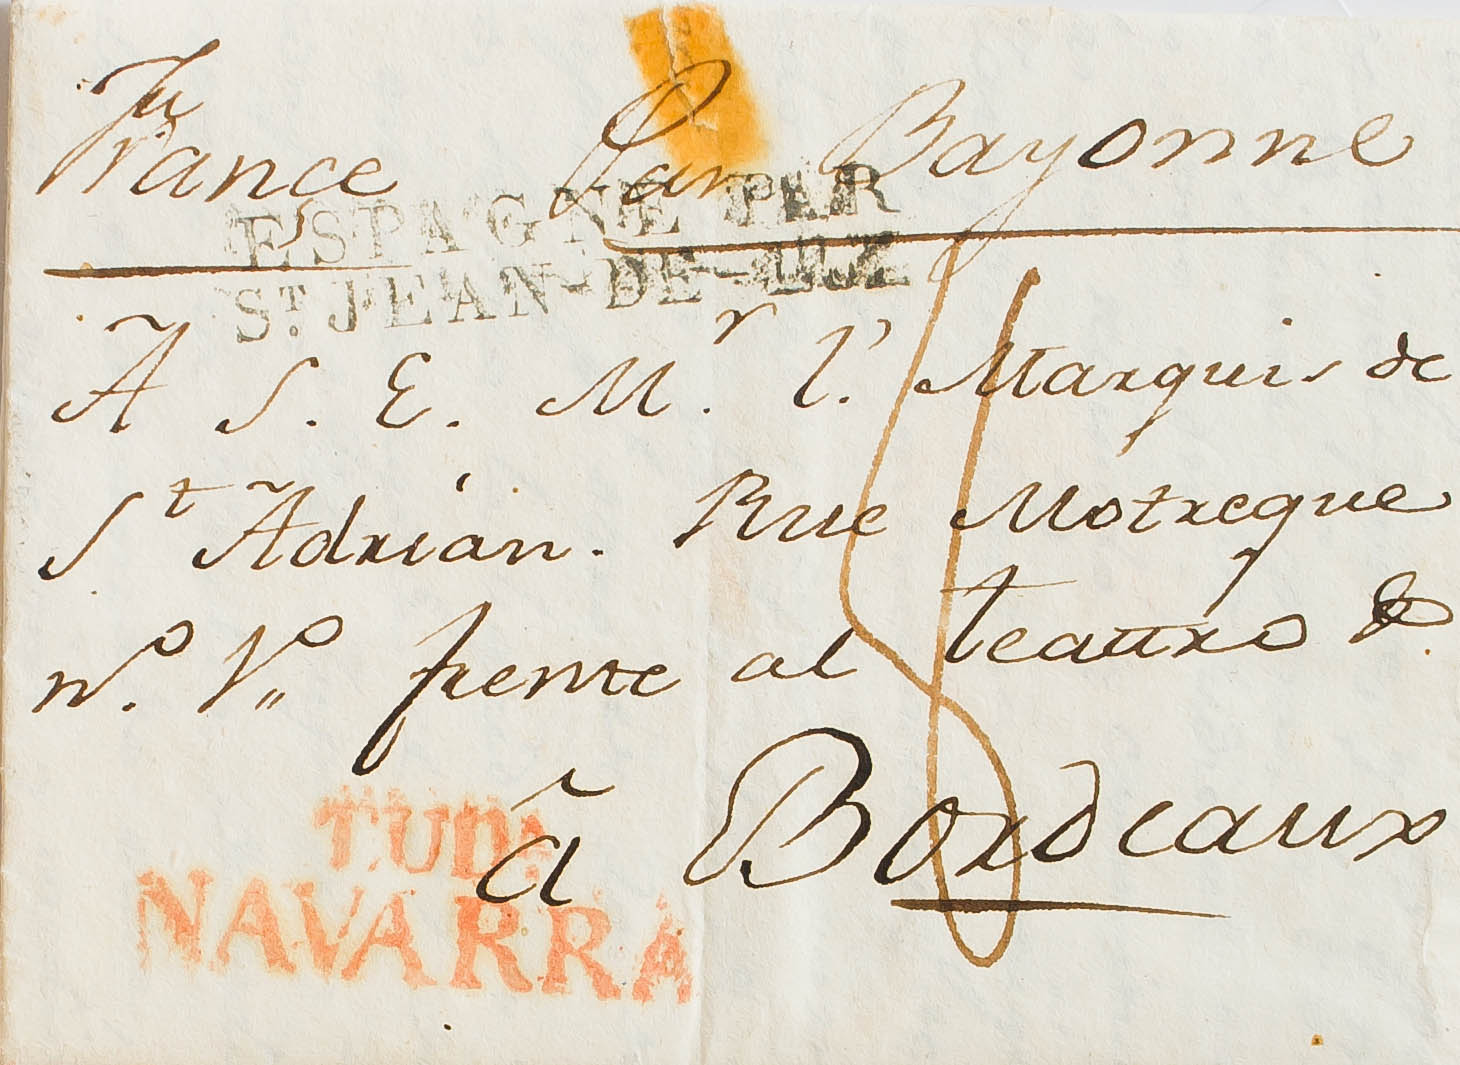 France Par Bayonne
ESPAGNE PAR
ST. JEAN-DE-LUZ
A S. E. Mr. l'. Marquis de
St Adrián. Rue Motreque
no. 1o,, frente al teattro
â Bordeaux
TUDA
NAVARRA